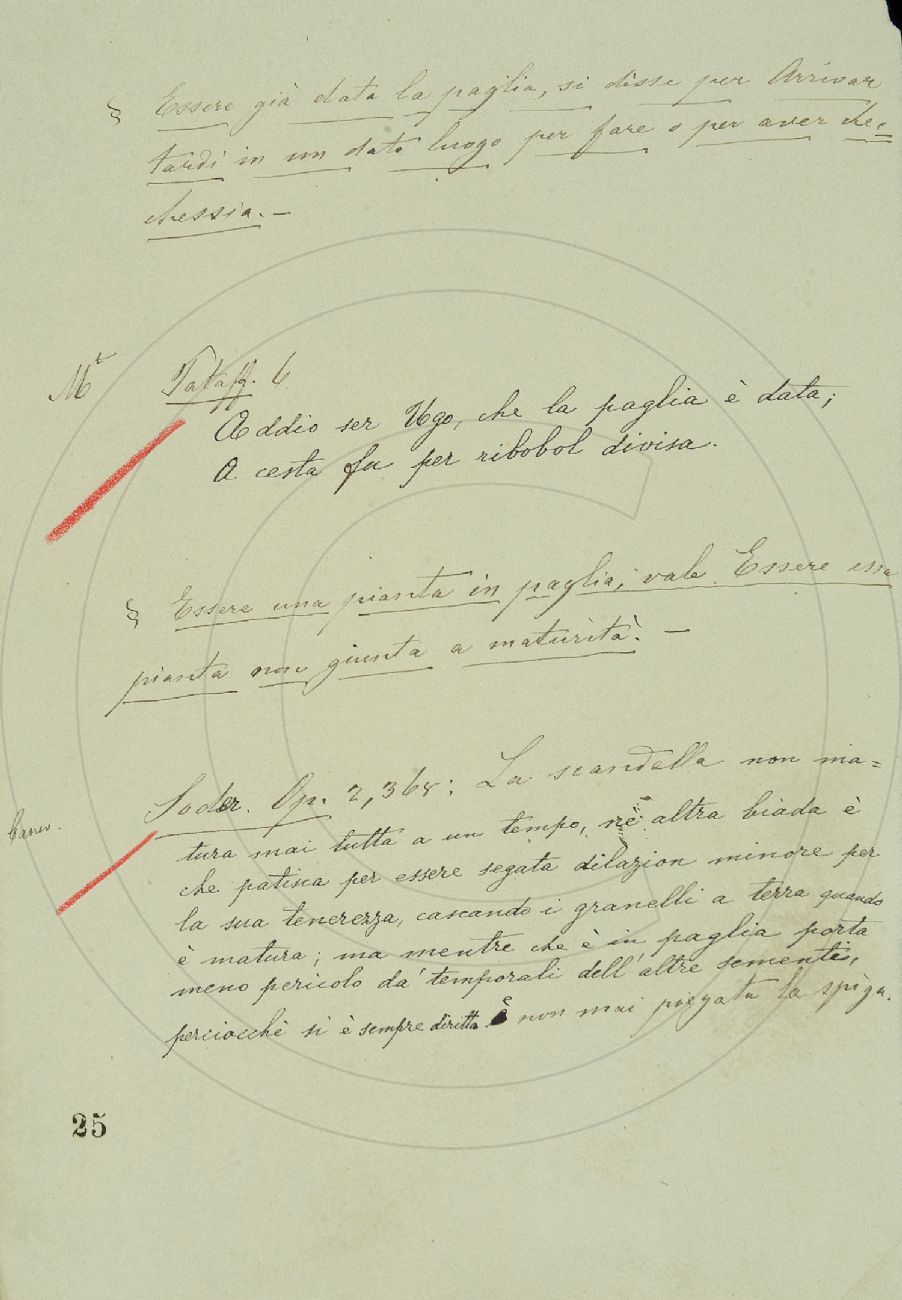 § Essere già data la paglia, si disse per Arrivar
tardi in un dato luogo per fare o per aver che=
chessia. —
Mt Pataff. 6
Addio ser Ugo, che la paglia è data;
A cesta fu per ribobol divisa.
§ Essere una pianta in paglia, vale Essere essa
pianta non giunta a maturità. —
Soder. Op. 2, 368: La scandella non ma=
tura mai tutta a un tempo, nè altra biada è
che patisca per essere segata dilazion minore per
la sua tenerezza, cascando i granelli a terra quando
è matura; ma mentre che è in paglia porta
meno pericolo da' temporali dell' altre sementi,
perciocchè si è sempre diritta e non mai piegata la spiga.
25